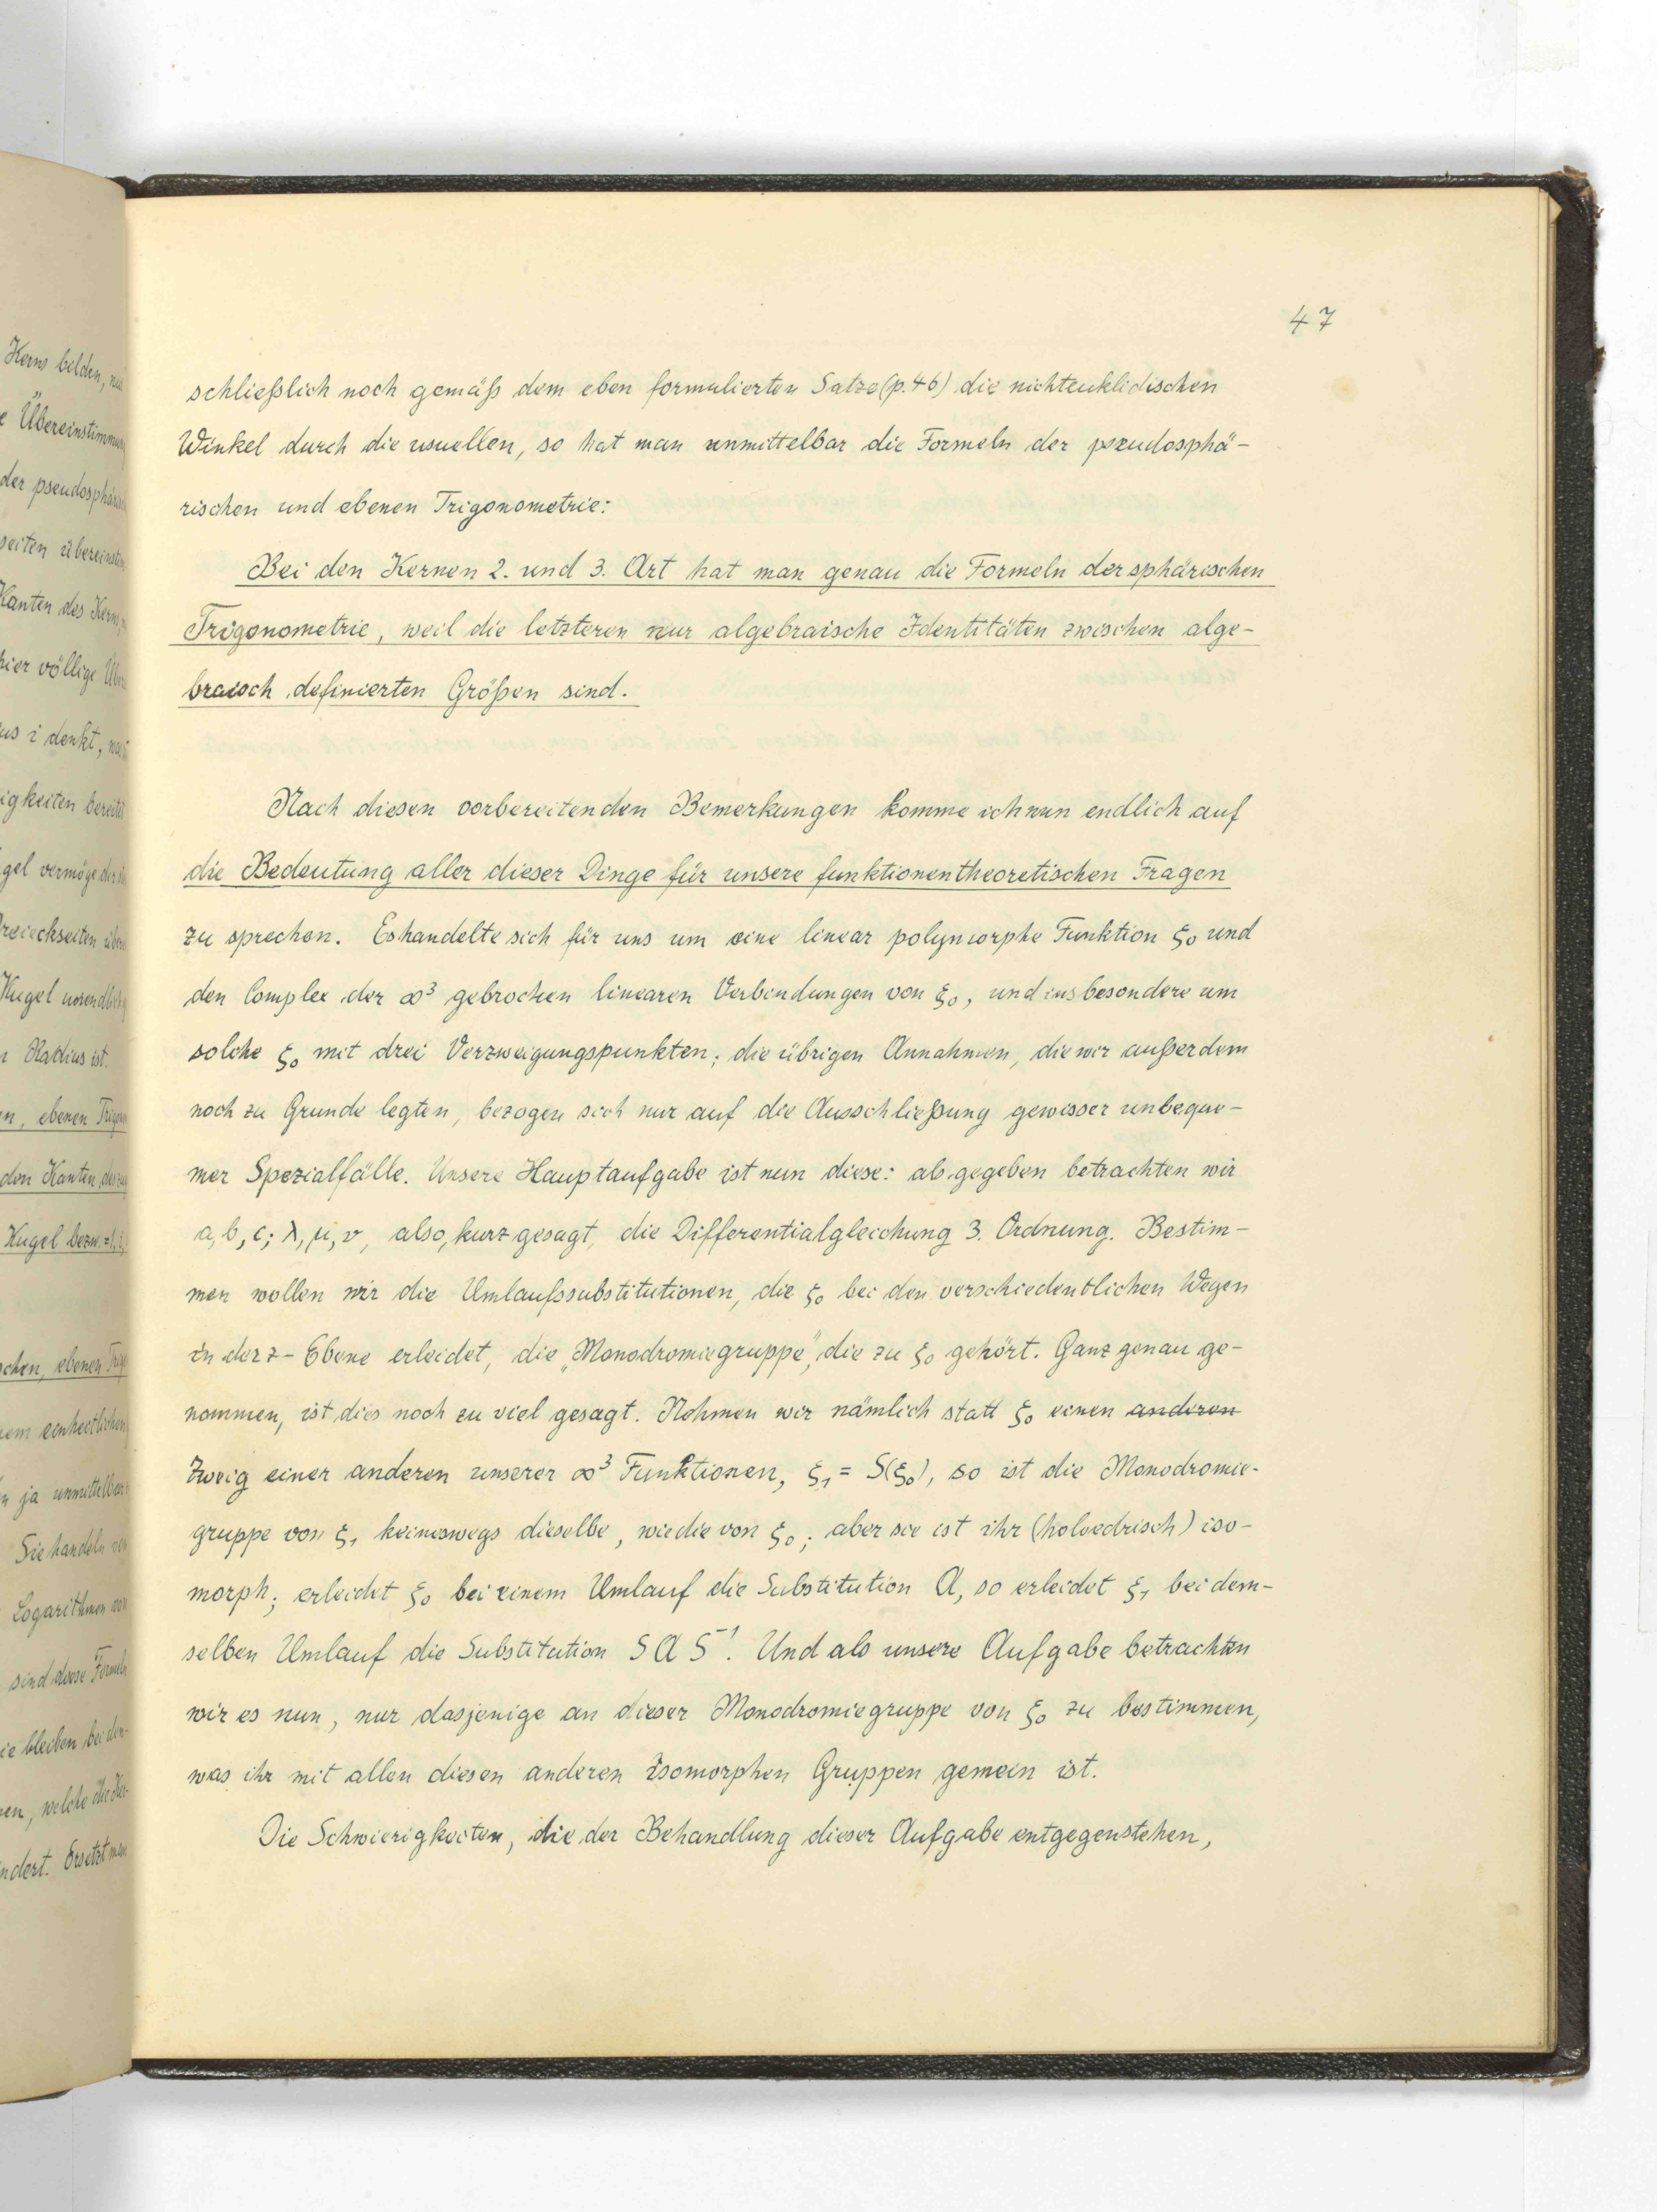 47
schließlich noch gemäß dem eben formulierten Satze (p. 46) die nichteuklidischen
Winkel durch die usuellen, so hat man unmittelbar die Formeln der pseudosphä-
rischen und ebenen Trigonometrie:
Bei den Kernen 2. und 3. Art hat man genau die Formeln der sphärischen
Trigonometrie, weil die letzteren nur algebraische Identitäten zwischen alge-
braisch definierten Größen sind.
Nach diesen vorbereitenden Bemerkungen komme ich nun endlich auf
die Bedeutung aller dieser Dinge für unsere funktionentheoretischen Fragen
zu sprechen. Es handelte sich für uns um eine linear polymorphe Funktion ξ₀ und
den Complex der ∞³ gebrochen linearen Verbindungen von ξ₀, und insbesondere um
solche ξ₀ mit drei Verzweigungspunkten; die übrigen Annahmen, die wir außerdem
noch zu Grunde legten, bezogen sich nur auf die Ausschließung gewisser unbeque-
mer Spezialfälle. Unsere Hauptaufgabe ist nun diese: als gegeben betrachten wir
a, b, c; λ, μ, ν, also, kurz gesagt, die Differentialgleichung 3. Ordnung. Bestim-
men wollen wir die Umlaufssubstitutionen, die ξ₀ bei den verschiedentlichen Wegen
in der z-Ebene erleidet, die „Monodromiegruppe", die zu ξ₀ gehört. Ganz genau ge-
nommen, ist dies noch zu viel gesagt. Nehmen wir nämlich statt ξ₀ einen anderen
Zweig einer anderen unserer ∞³ Funktionen, ξ₁ = S(ξ₀), so ist die Monodromie-
gruppe von ξ₁ keineswegs dieselbe, wie die von ξ₀; aber sie ist ihr (holoedrisch) iso-
morph; erleidet ξ₀ bei einem Umlauf die Substitution A, so erleidet ξ₁ bei dem-
selben Umlauf die Substitution S A S⁻¹. Und als unsere Aufgabe betrachten
wir es nun, nur dasjenige an dieser Monodromiegruppe von ξ₀ zu bestimmen,
was ihr mit allen diesen anderen isomorphen Gruppen gemein ist.
Die Schwierigkeiten, die der Behandlung dieser Aufgabe entgegenstehen,